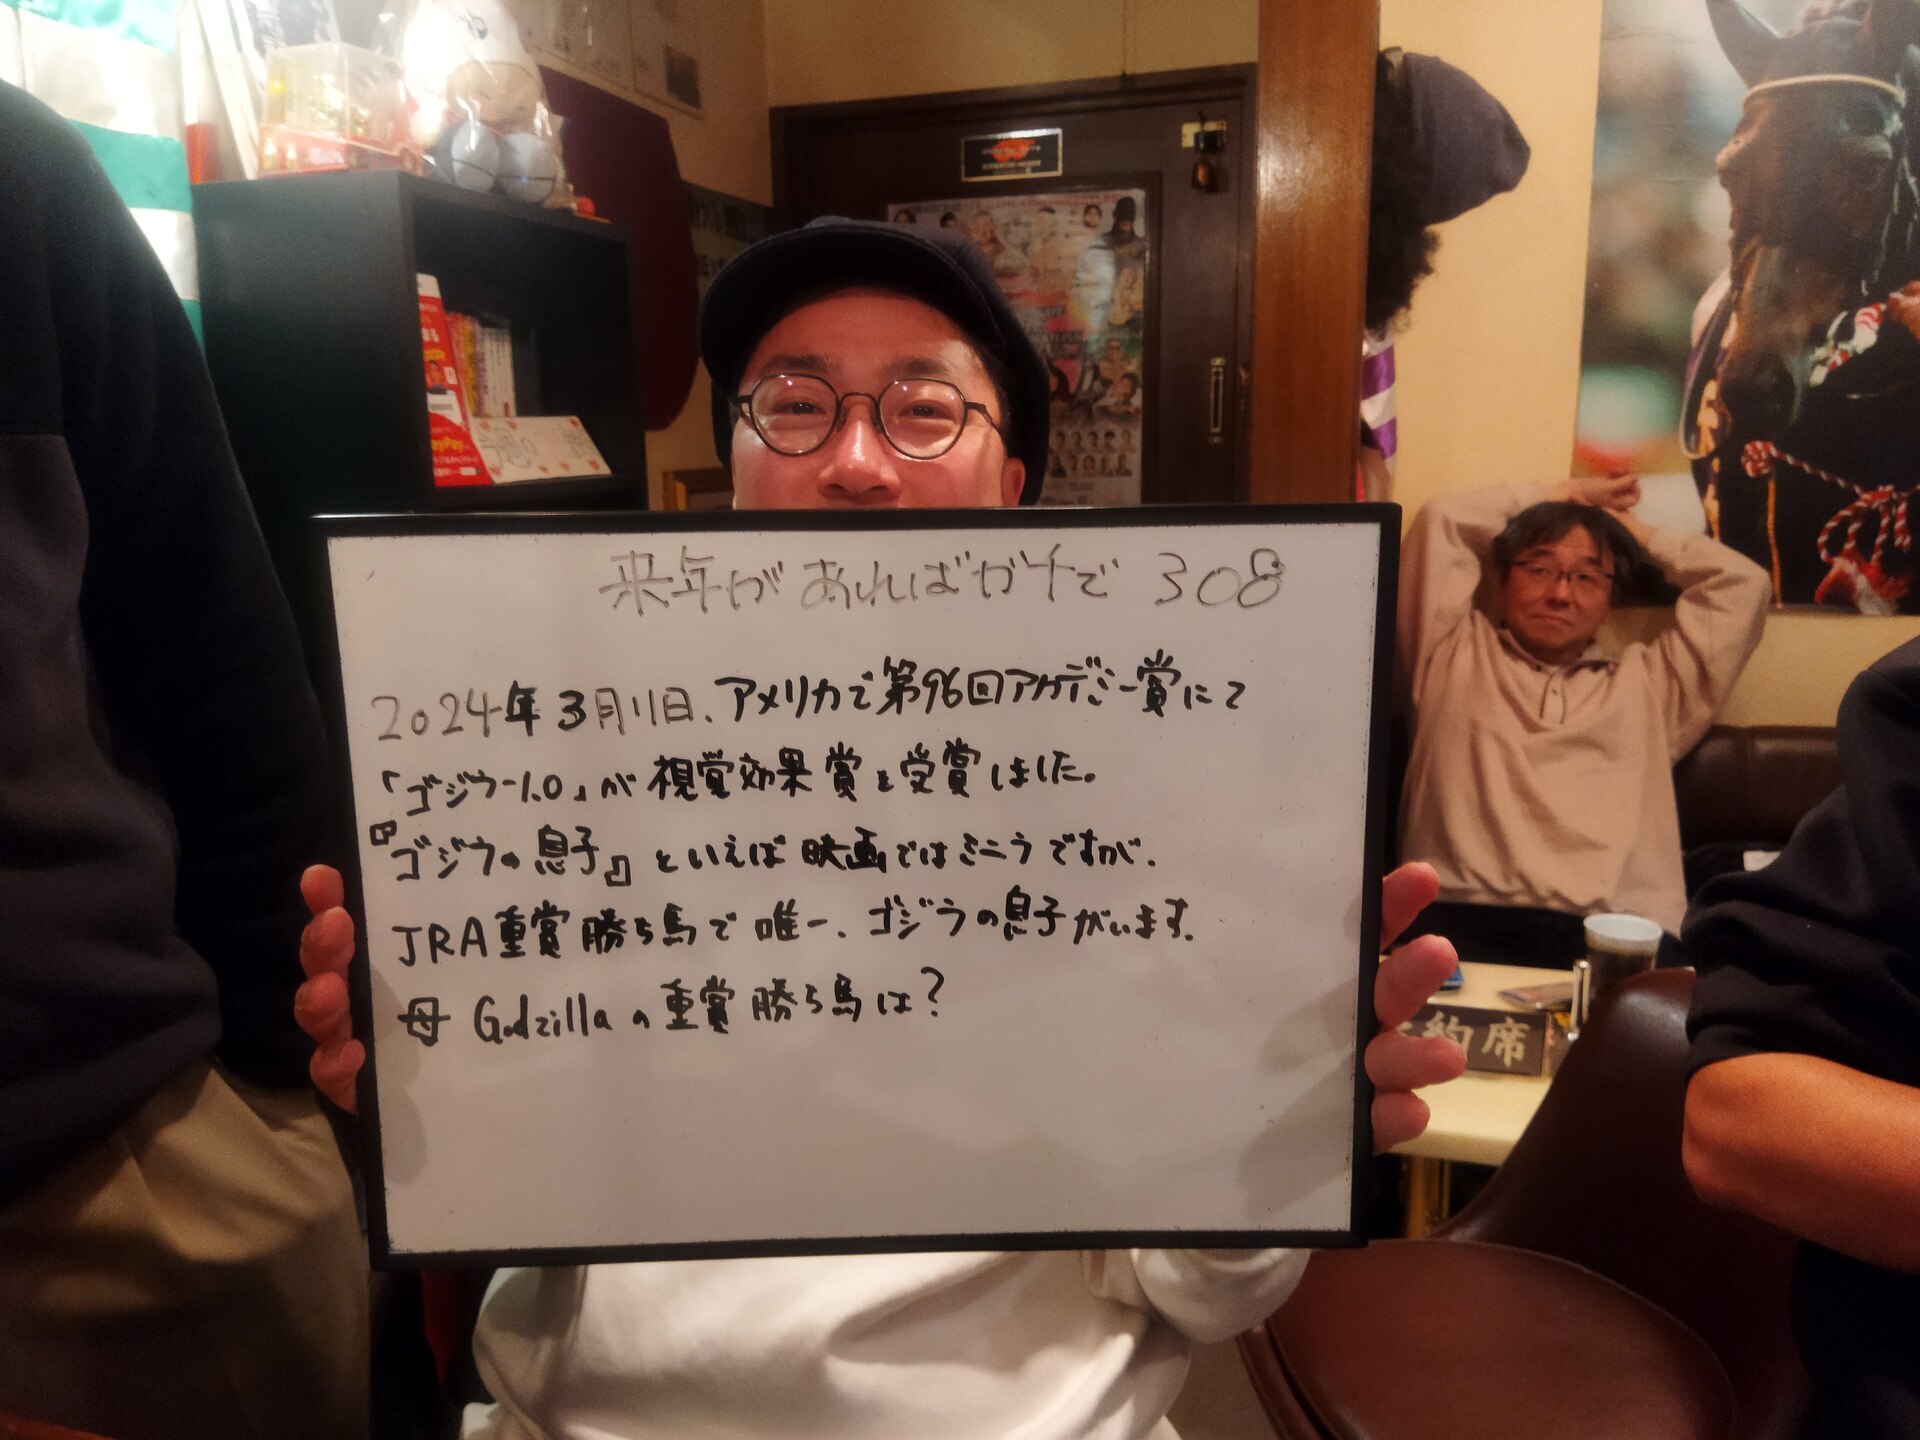 来年があればガチで 308
2024年3月11日、アメリカで第96回アカデミー賞にて
「ゴジラ-1.0」が視覚効果賞を受賞しました。
『ゴジラの息子』といえば映画ではミニラですが、
JRA重賞勝ち馬で唯一、ゴジラの息子がいます。
母 Godzillaの重賞勝ち馬は?
PayPay
約席